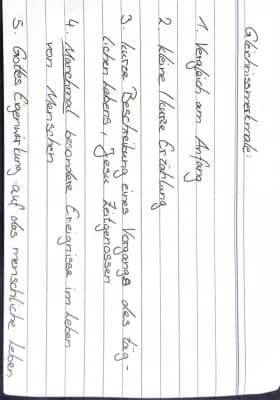 Gleichnissmerkmale:
1. Vergleich am Anfang
2. kleine / kurze Erzählung
3. kurze Beschreibung eines Vorgangs des täg-
lichen Lebens, Jesu Zeitgenossen
4. Manchmal besondere Ereignisse im Leben
von Menschen
5. Gottes Eigenwirkung auf das menschliche Leben